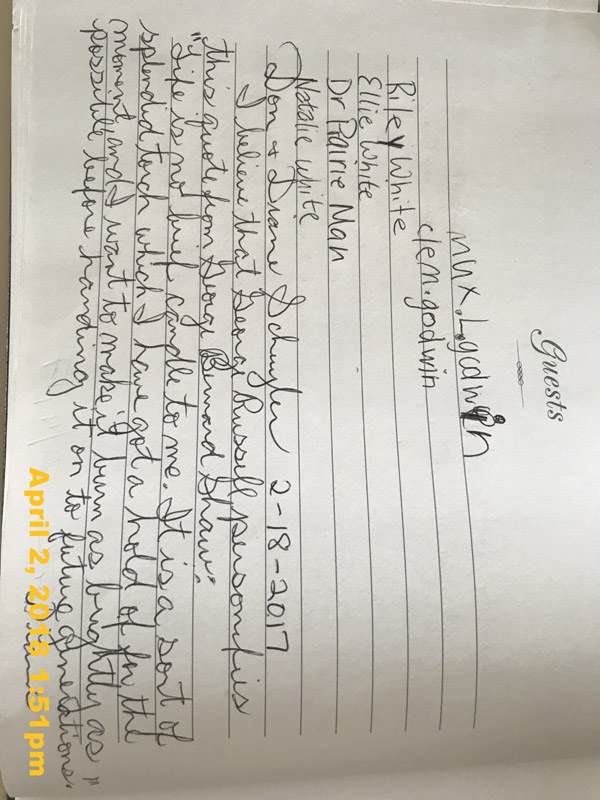 Guests
max.L.godwin
clem.godwin
Riley White
Ellie White
Dr Prairie Man
Natalie White
Don & Diane Schuyler 2-18-2017
I believe that George Russell personifies
this quote from George Bernard Shaw:
"Life is no brief candle to me. It is a sort of
splendid torch which I have got a hold of for the
moment, and I want to make it burn as brightly as
possible before handing it on to future generations."
April 2, 2018 1:51pm